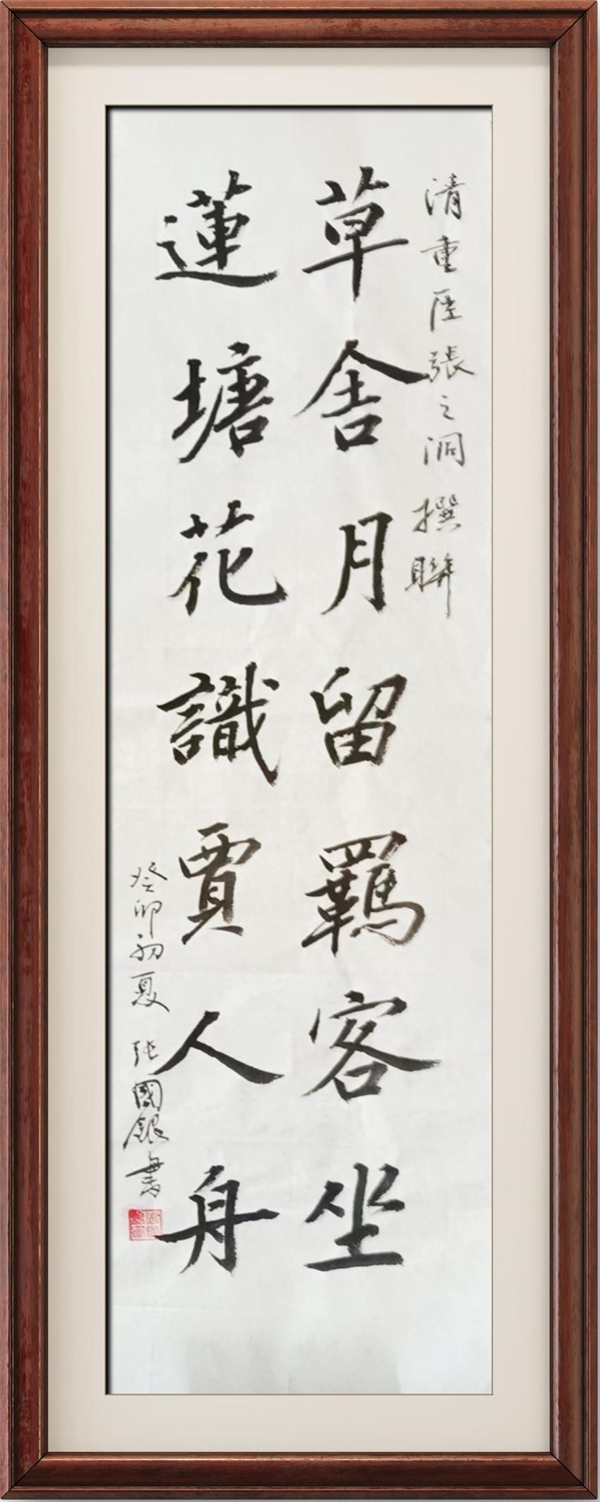 清重臣張之洞撰聯
草舍月留羈客坐
蓮塘花識賈人舟
癸卯初夏 張國銀書